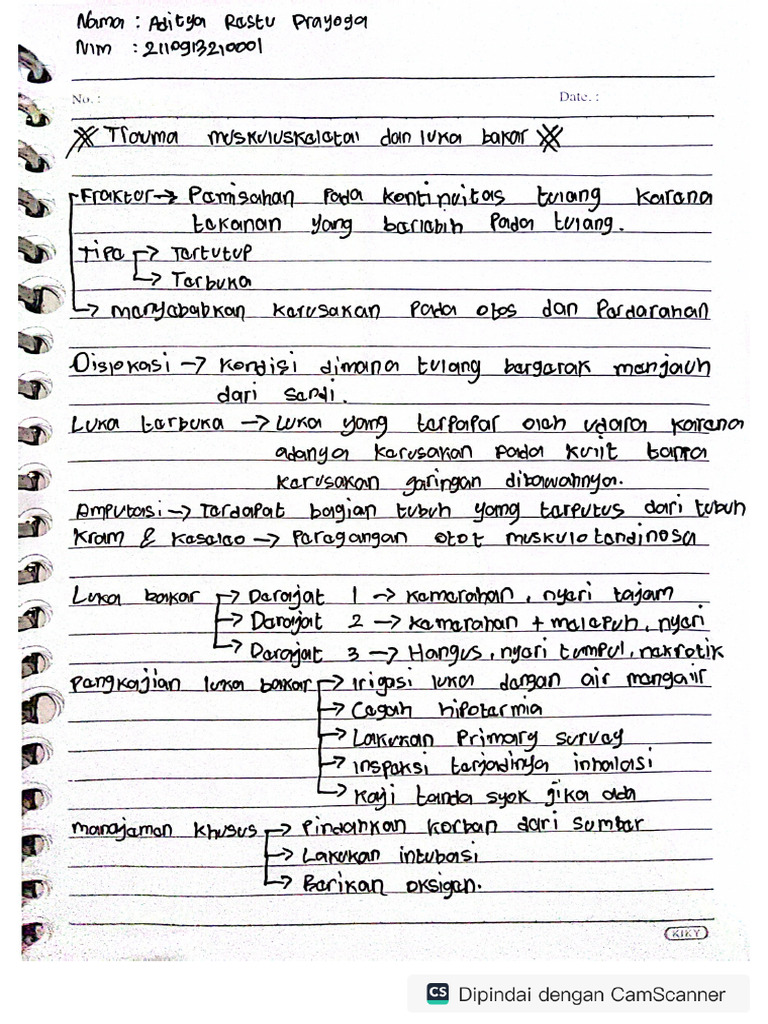 Nama : Aditya Restu Prayoga
Nim : 2110913210001
No. :
Date. :
Trauma muskuluskeletal dan luka bakar
Fraktur → Pemisahan pada kontinuitas tulang karena
tekanan yang berlebih pada tulang.
Tipe → Tertutup
→ Terbuka
→ menyebabkan kerusakan pada otos dan Perdarahan
Dislokasi → kondisi dimana tulang bergerak menjauh
dari sendi.
Luka terbuka → Luka yang terpapar oleh udara karena
adanya kerusakan pada kulit tanpa
kerusakan jaringan dibawahnya.
Amputasi → Terdapat bagian tubuh yang terputus dari tubuh
Kram & Keseleo → Peregangan otot muskulotendinosa
Luka bakar → Derajat 1 → kemerahan, nyeri tajam
→ Derajat 2 → kemerahan + melepuh, nyeri
→ Derajat 3 → Hangus, nyeri tumpul, nekrotik
Pengkajian luka bakar → irigasi luka dengan air mengalir
→ Cegah hipotermia
→ Lakukan Primary survey
→ inspeksi terjadinya inhalasi
→ Kaji tanda syok jika ada
manajemen khusus → Pindahkan korban dari sumber
→ Lakukan intubasi
→ Berikan oksigen.
KIKY
CS Dipindai dengan CamScanner